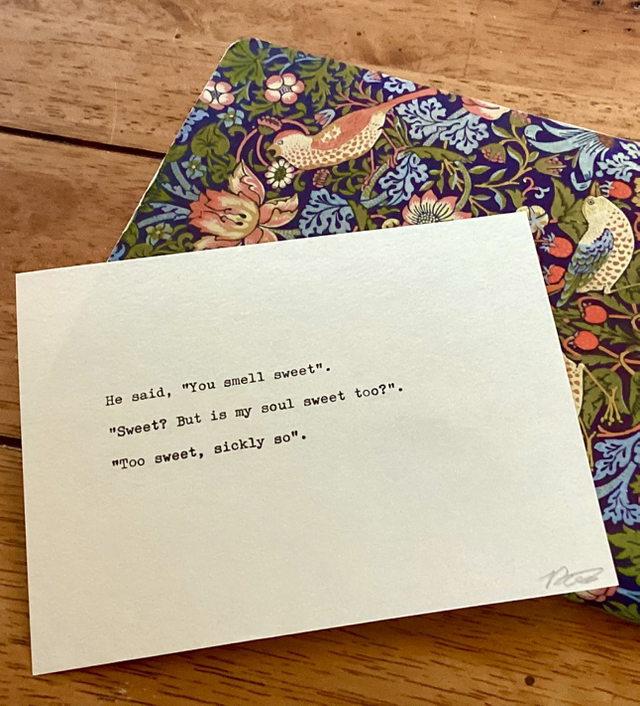 He said, "You smell sweet".
"Sweet? But is my soul sweet too?".
"Too sweet, sickly so".